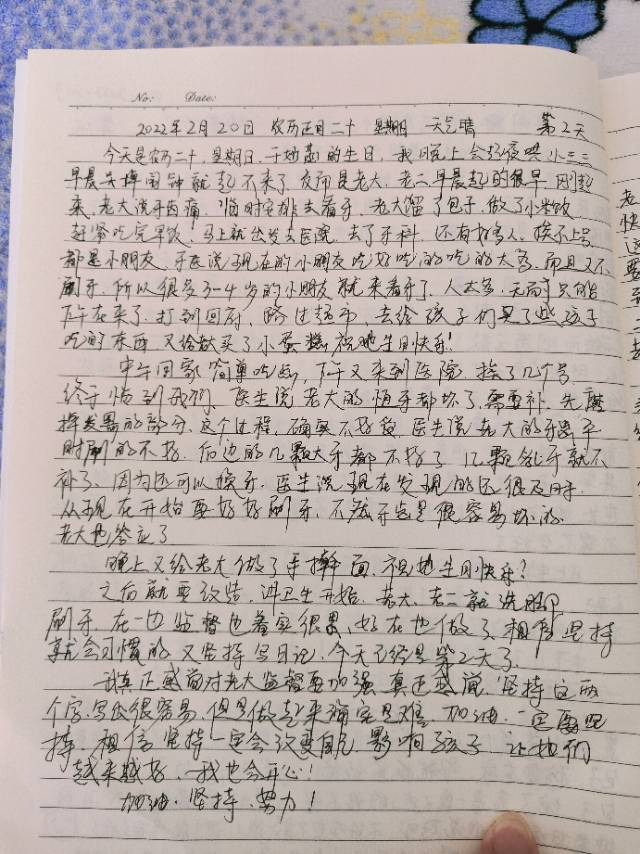 No: Date:
2022年2月20日 农历正月二十 星期日 天气晴 第2天
今天是农历二十，星期日，的生日，我晚上会起夜哄小三三
早晨关掉闹钟就起不来了，反而是老大，老二早晨起的很早，刚起
来，老大说牙齿痛，临时安排去看牙，老大溜了包子，做了小米饭
赶紧吃完早饭，马上就出发去医院，去了牙科，还有好多人，挨不上号
都是小朋友，牙医说现在的小朋友吃好吃的吃的太多，而且又不
刷牙，所以很多3-4岁的小朋友就来看牙了，人太多，无奈只能
下午在来了，打到回府，路过超市，去给孩子们买了些孩子
吃的东西，又给她买了小蛋糕，祝她生日快乐！
中午回家简单吃些，下午又来到医院，挨了几个号
终于临到我们，医生说老大的恒牙都坏了，需要补，先磨
掉发黑的部分，这个过程，确实不好受，医生说老大的牙齿平
时刷的不好，后边的几颗大牙都不好了，几颗乳牙就不
补了，因为还可以换牙，医生说现在发现的还很及时，
从现在开始要好好刷牙，不然牙齿是很容易坏的，
老大也答应了
晚上又给老大做了手擀面，祝她生日快乐？
之后就要改造，讲卫生开始，老大、老二就洗脚
刷牙，在一边监督也着实很累，好在也做了，相信坚持
就会习惯的，又坚持写日记，今天已经是第2天了，
我真正感觉对老大监督要加强，真正感觉，坚持这两
个字，写出很容易，但是做起来确实是难，加油，一定要坚
持，相信坚持一定会改变自己，影响孩子，让她们
越来越好，我也会开心！
加油，坚持，努力！
老
快